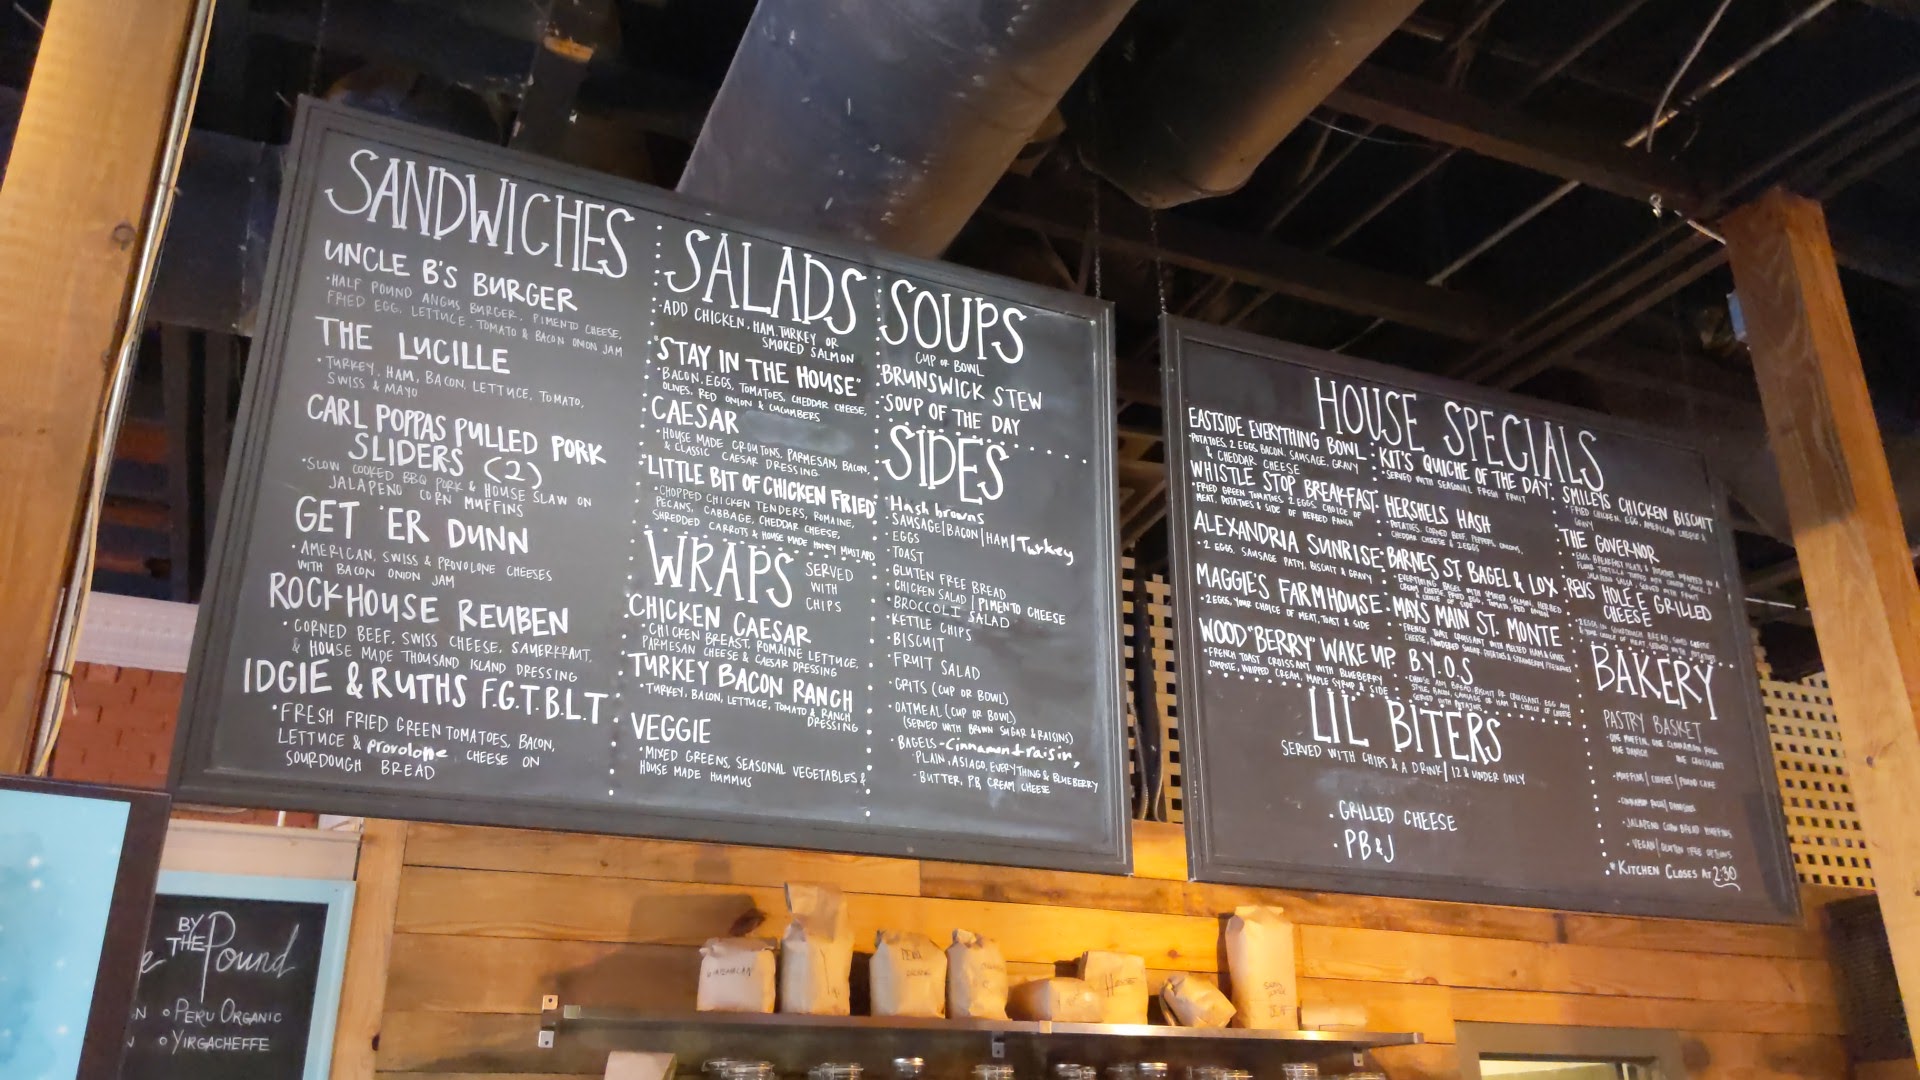 SANDWICHES
UNCLE B'S BURGER
•HALF POUND ANGUS BURGER, PIMENTO CHEESE,
FRIED EGG, LETTUCE, TOMATO & BACON ONION JAM
THE LUCILLE
•TURKEY, HAM, BACON, LETTUCE, TOMATO,
SWISS & MAYO
CARL POPPAS PULLED PORK
SLIDERS (2)
•SLOW COOKED BBQ PORK & HOUSE SLAW ON
JALAPENO CORN MUFFINS
GET 'ER DUNN
•AMERICAN, SWISS & PROVOLONE CHEESES
WITH BACON ONION JAM
ROCKHOUSE REUBEN
•CORNED BEEF, SWISS CHEESE, SAUERKRAUT,
& HOUSE MADE THOUSAND ISLAND DRESSING
IDGIE & RUTHS F.G.T.B.L.T
•FRESH FRIED GREEN TOMATOES, BACON,
LETTUCE & provolone CHEESE ON
SOURDOUGH BREAD
SALADS
•ADD CHICKEN, HAM, TURKEY OR
SMOKED SALMON
"STAY IN THE HOUSE"
•BACON, EGGS, TOMATOES, CHEDDAR CHEESE,
OLIVES, RED ONION & CUCUMBERS
CAESAR
•HOUSE MADE CROUTONS, PARMESAN, BACON,
& CLASSIC CAESAR DRESSING
"LITTLE BIT OF CHICKEN FRIED"
•CHOPPED CHICKEN TENDERS, ROMAINE,
PECANS, CABBAGE, CHEDDAR CHEESE,
SHREDDED CARROTS & HOUSE MADE HONEY MUSTARD
WRAPS
SERVED
WITH
CHIPS
CHICKEN CAESAR
•CHICKEN BREAST, ROMAINE LETTUCE,
PARMESAN CHEESE & CAESAR DRESSING
TURKEY BACON RANCH
•TURKEY, BACON, LETTUCE, TOMATO & RANCH
DRESSING
VEGGIE
•MIXED GREENS, SEASONAL VEGETABLES &
HOUSE MADE HUMMUS
SOUPS
CUP OR BOWL
•BRUNSWICK STEW
•SOUP OF THE DAY
SIDES
•Hash browns
•SAUSAGE|BACON|HAM|Turkey
•EGGS
•TOAST
•GLUTEN FREE BREAD
•CHICKEN SALAD | PIMENTO CHEESE
•BROCCOLI SALAD
•KETTLE CHIPS
•BISCUIT
•FRUIT SALAD
•GRITS (CUP OR BOWL)
•OATMEAL (CUP OR BOWL)
(SERVED WITH BROWN SUGAR & RAISINS)
•BAGELS-Cinnamon+raisin,
•PLAIN, ASIAGO, EVERYTHING & BLUEBERRY
•BUTTER, P.B, CREAM CHEESE
HOUSE SPECIALS
EASTSIDE EVERYTHING BOWL
•POTATOES, 2 EGGS, BACON, SAUSAGE, GRAVY
& CHEDDAR CHEESE
WHISTLE STOP BREAKFAST
•FRIED GREEN TOMATOES, 2 EGGS, CHOICE OF
MEAT, POTATOES & SIDE OF HERBED RANCH
ALEXANDRIA SUNRISE
•2 EGGS, SAUSAGE PATTY, BISCUIT & GRAVY
MAGGIE'S FARMHOUSE
•2 EGGS, YOUR CHOICE OF MEAT, TOAST & SIDE
WOOD"BERRY" WAKE UP
•FRENCH TOAST CROISSANT WITH BLUEBERRY
COMPOTE, WHIPPED CREAM, MAPLE SYRUP & SIDE
KIT'S QUICHE OF THE DAY
•SERVED WITH SEASONAL FRESH FRUIT
HERSHELS HASH
•POTATOES, CORNED BEEF, PEPPERS, ONIONS,
CHEDDAR CHEESE & 2 EGGS
BARNES ST. BAGEL & LOX
•EVERYTHING BAGEL WITH SMOKED SALMON, HERBED
MAYS MAIN ST. MONTE
•FRENCH TOAST CROISSANT WITH MELTED HAM & SWISS
B.Y.O.S
•CHOOSE ANY BREAD, BISCUIT OR CROISSANT, EGG ANY
STYLE, BACON, SAUSAGE OR HAM & CHOICE OF CHEESE
SMILEY'S CHICKEN BISCUIT
•FRIED CHICKEN, EGG, AMERICAN CHEESE &
GRAVY
THE GOVERNOR
REV'S HOLE E GRILLED
CHEESE
LIL' BITERS
SERVED WITH CHIPS & A DRINK| 12 & UNDER ONLY
•GRILLED CHEESE
•PB&J
BAKERY
PASTRY BASKET
•ONE MUFFIN, ONE CINNAMON ROLL
ONE CROISSANT
•JALAPENO CORN BREAD MUFFINS
•VEGAN| GLUTEN FREE OPTIONS
*KITCHEN CLOSES AT 2:30
BY
THE Pound
•PERU ORGANIC
•YIRGACHEFFE